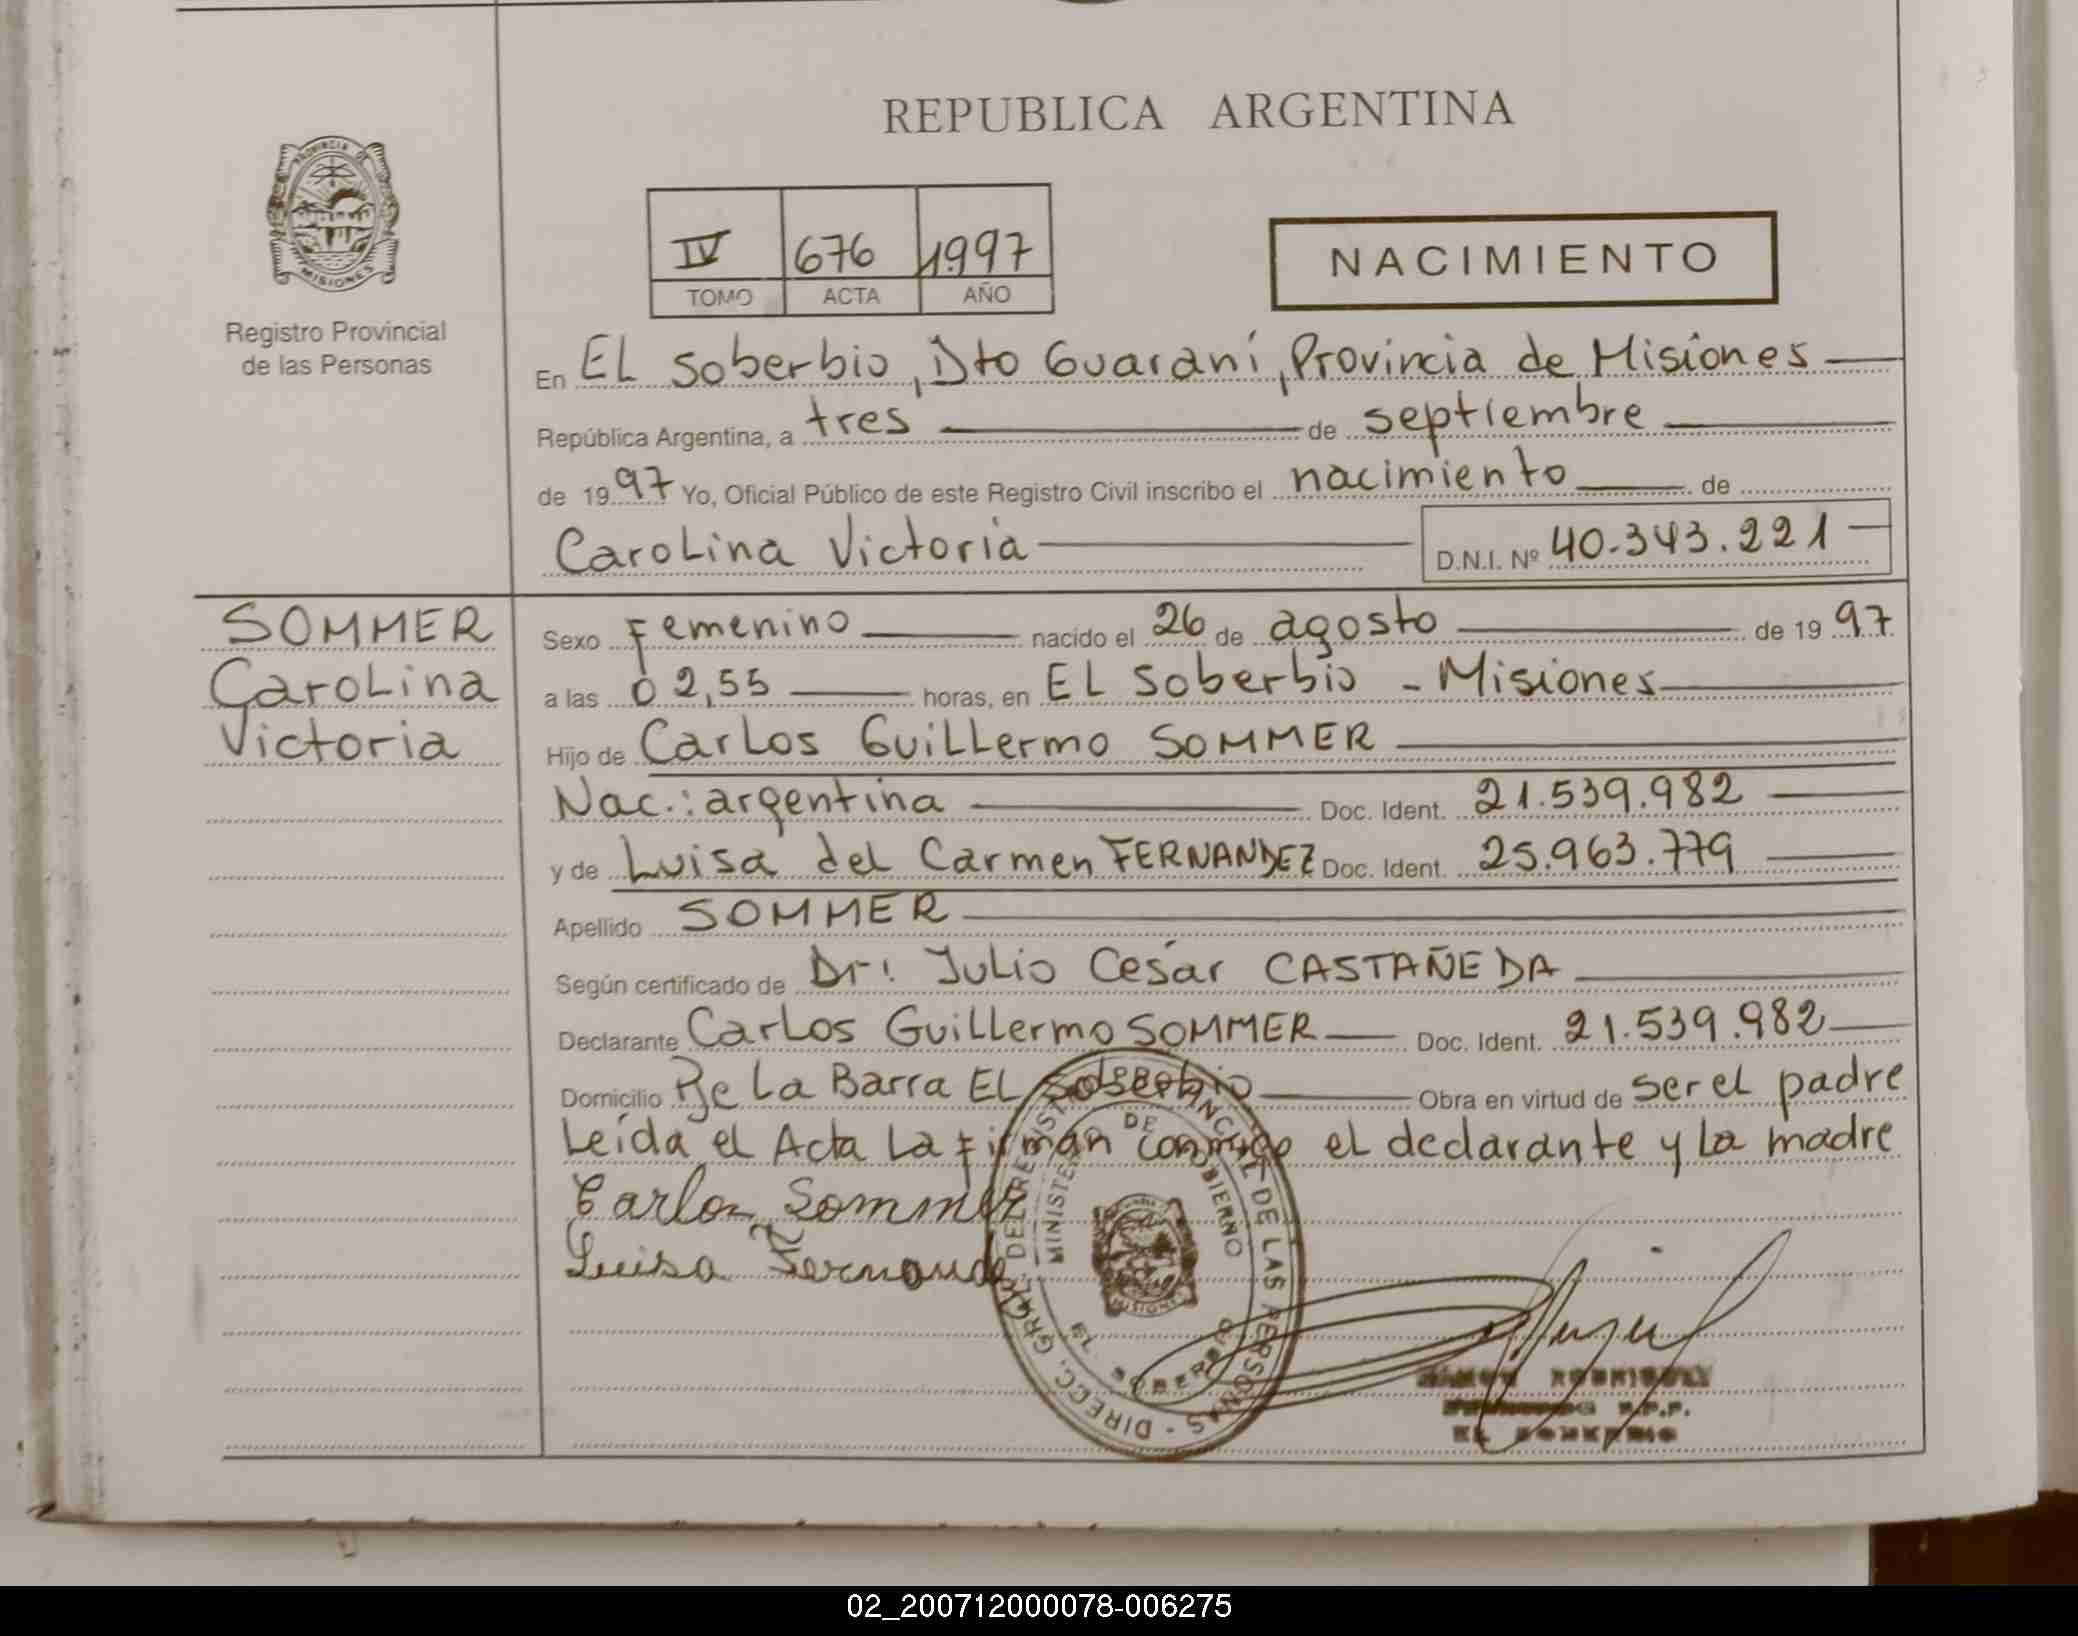 REPUBLICA ARGENTINA
PROVINCIA DE
MISIONES
Registro Provincial
de las Personas
IV 676 1997
TOMO ACTA AÑO
NACIMIENTO
En EL Soberbio, Dto Guaraní, Provincia de Misiones
República Argentina, a tres de septiembre
de 1997 Yo, Oficial Público de este Registro Civil inscribo el nacimiento de
Carolina Victoria D.N.I. Nº 40.343.221
SOMMER
Carolina
Victoria
Sexo Femenino nacido el 26 de agosto de 1997
a las 02,55 horas, en EL Soberbio - Misiones
Hijo de Carlos Guillermo SOMMER
Nac.: argentina Doc. Ident. 21.539.982
y de Luisa del Carmen FERNANDEZ Doc. Ident. 25.963.779
Apellido SOMMER
Según certificado de Dr. Julio Cesar CASTAÑEDA
Declarante Carlos Guillermo SOMMER Doc. Ident. 21.539.982
Domicilio Pje La Barra EL Soberbio Obra en virtud de ser el padre
Leída el Acta La firman conmigo el declarante y La madre
Carlos Sommer
Luisa Fernande
DIRECC. GRAL. DEL REGISTRO PROVINCIAL DE LAS PERSONAS
MINISTERIO DE GOBIERNO
MISIONES
SOBERBIO
R.P.P.
EL SOBERBIO
02_200712000078-006275